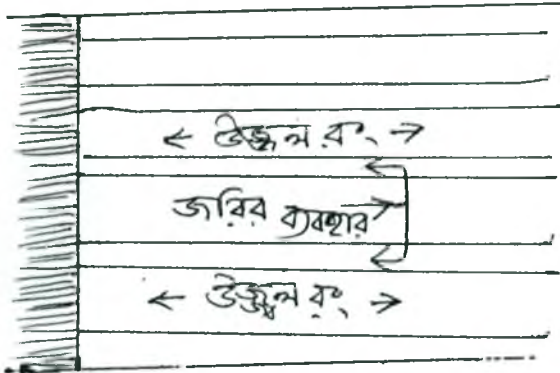 ← উজ্জ্বল রং →
জরির ব্যবহার
← উজ্জ্বল রং →